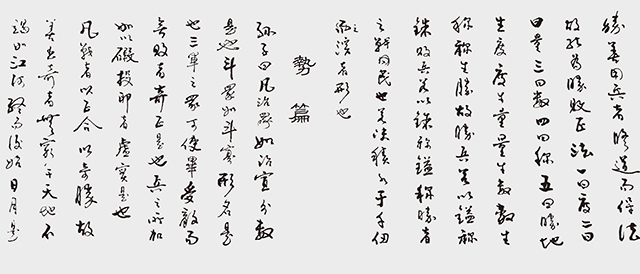 勝善用兵者修道而保法
故能為勝敗正法一曰度二曰
曰量三曰数四曰称五曰勝地
生度度生量量生数数生
称称生勝故勝兵若以鎰称
銖敗兵若以銖称鎰称勝者
之戰民也若决積水于千仞
之溪者形也
勢篇
孫子曰凡治眾如治寡分数
是也斗眾如斗寡形名是
也三軍之眾可使畢受敵而
無敗者奇正是也兵之所加
如以碫投卵者虛實是也
凡戰者以正合以奇勝故
善出奇者無窮于天地不
竭如江河終而復始日月是